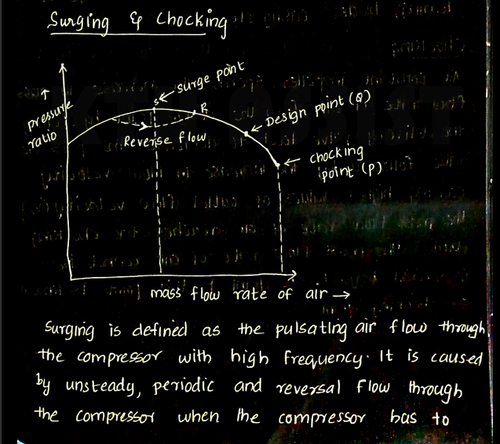 Surging & Chocking
surge point
S
R
Design point (Q)
Pressure
ratio
Reverse flow
chocking
point (P)
mass flow rate of air →
surging is defined as the pulsating air flow through
the compressor with high frequency. It is caused
by unsteady, periodic and reversal flow through
the compressor when the compressor has to